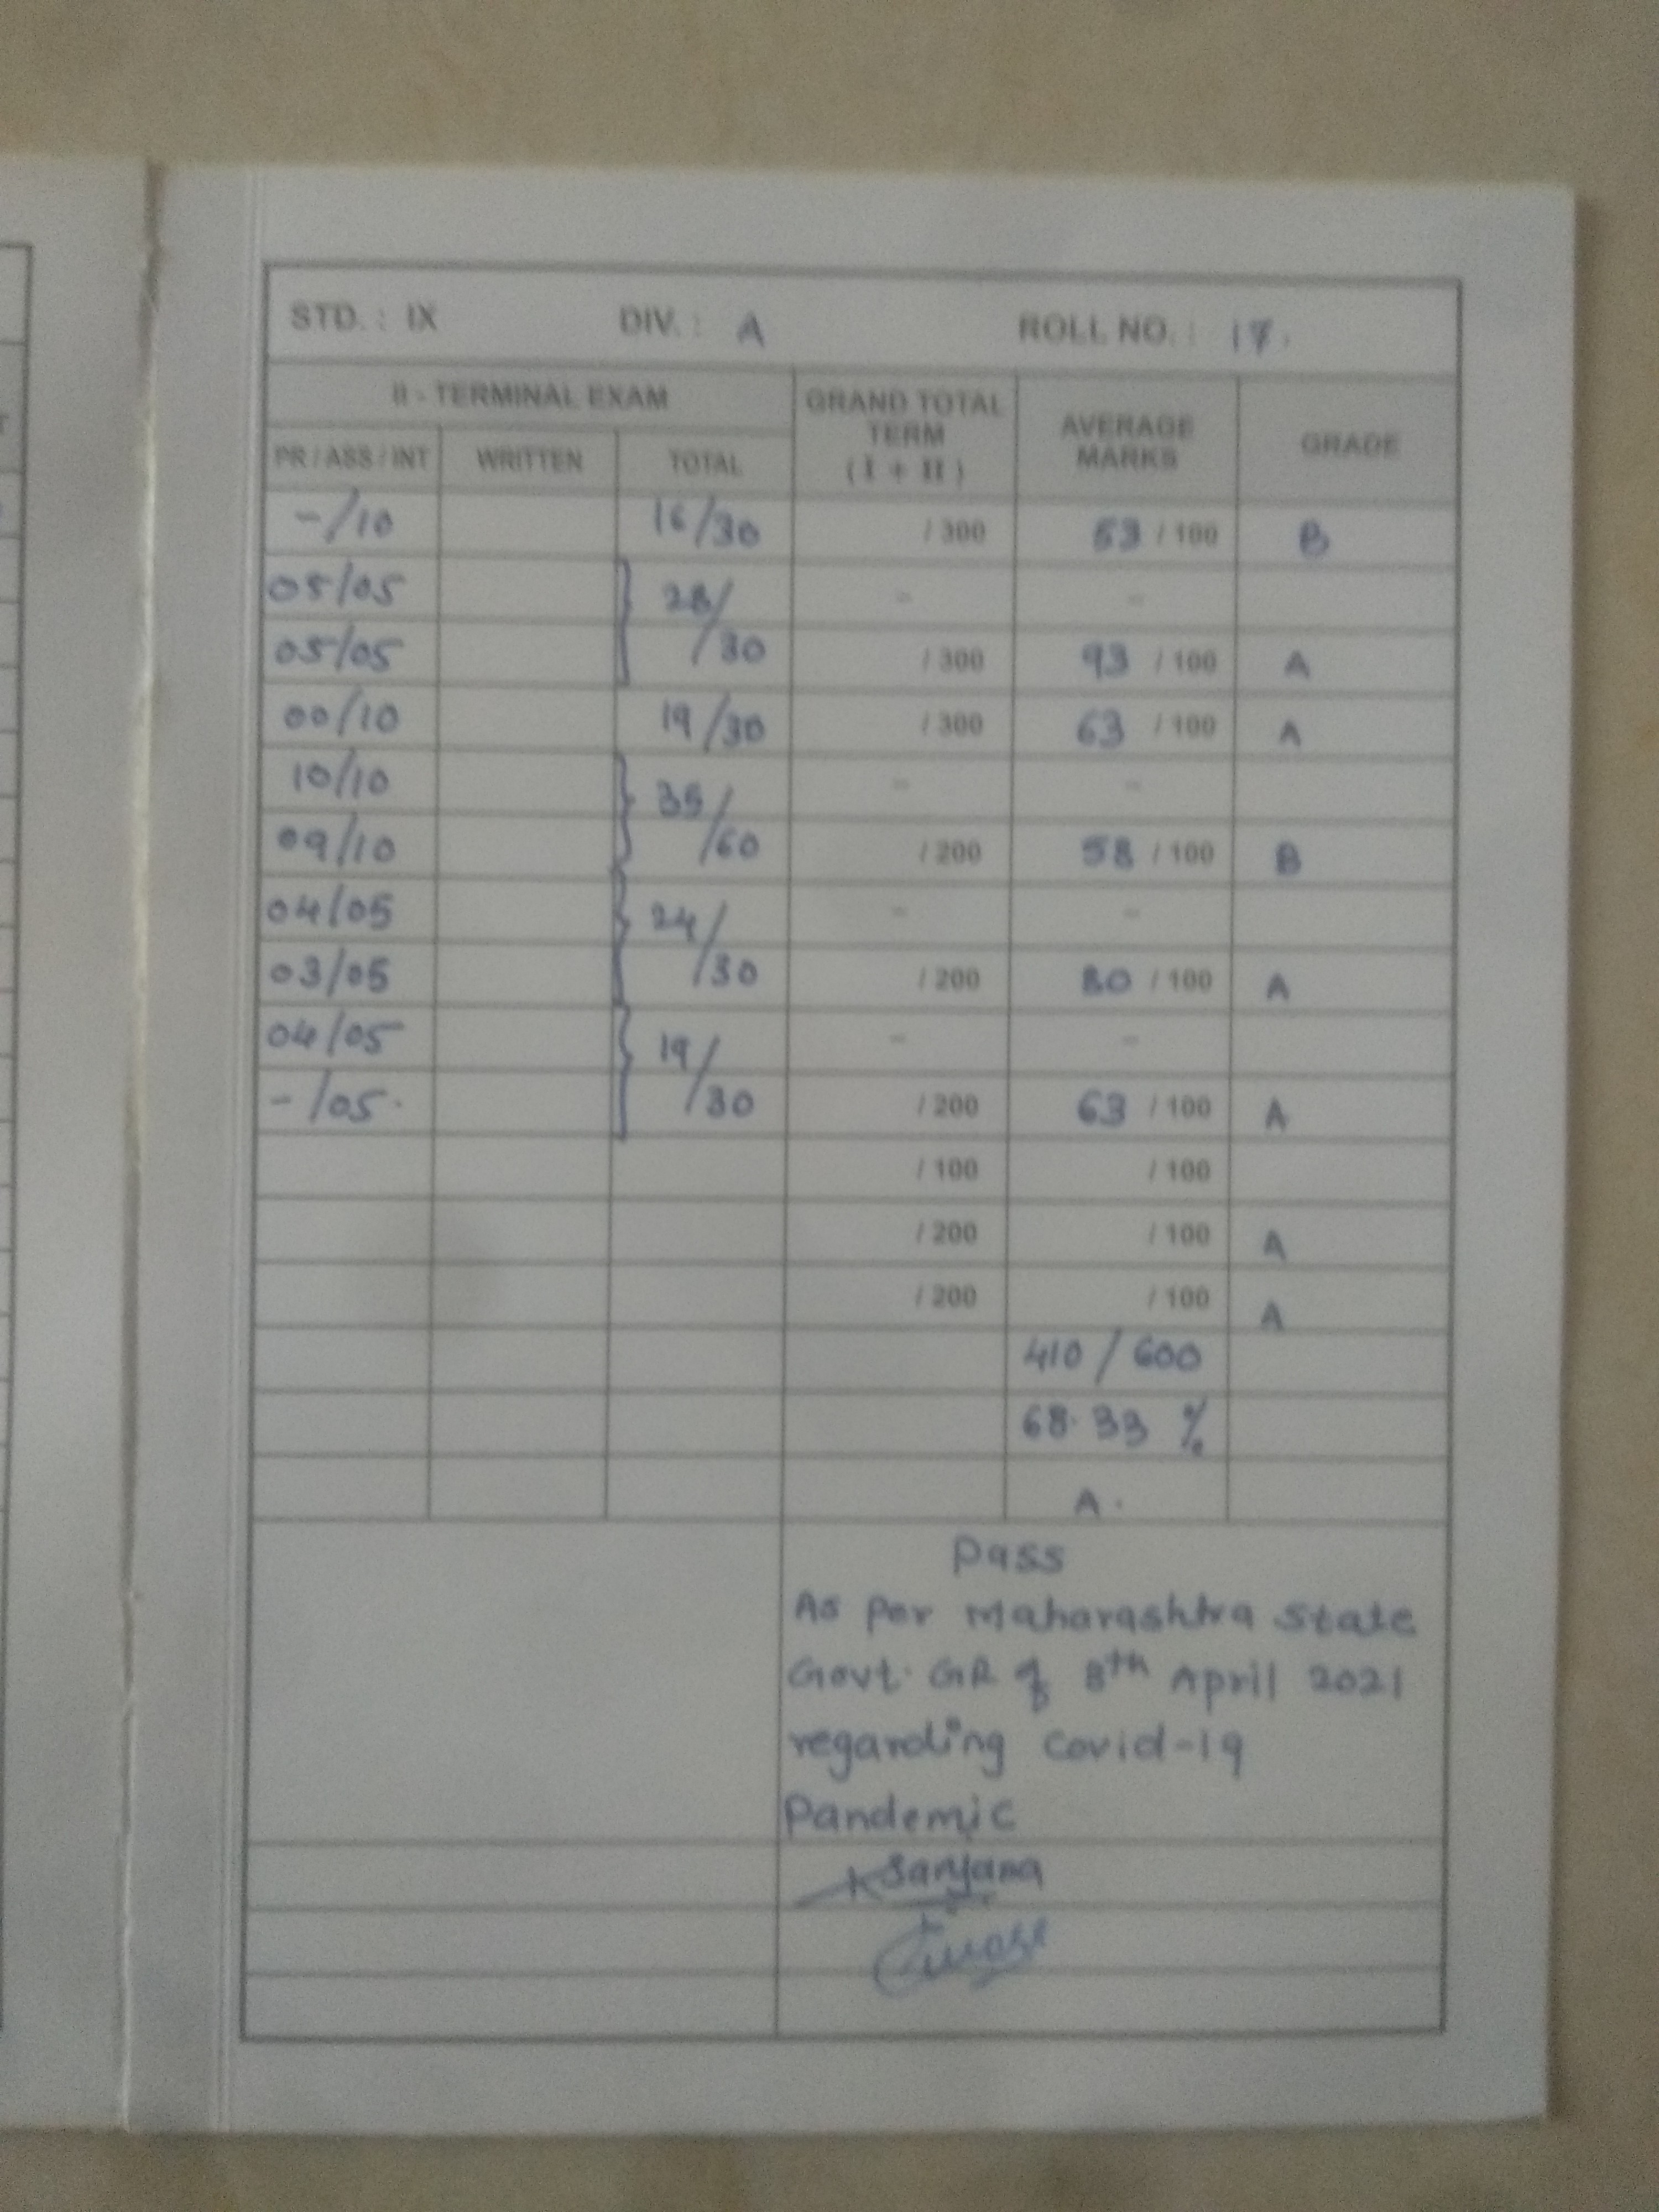 STD. : IX DIV. : A ROLL NO. : 17.
II - TERMINAL EXAM GRAND TOTAL TERM (I + II) AVERAGE MARKS GRADE
PR / ASS / INT WRITTEN TOTAL
-/10 16/30 / 300 53 / 100 B
05/05 28/ - -
05/05 /30 / 300 93 / 100 A
00/10 19/30 / 300 63 / 100 A
10/10 35/ - -
09/10 /60 / 200 58 / 100 B
04/05 24/ - -
03/05 /30 / 200 80 / 100 A
04/05 19/ - -
-/05. /30 / 200 63 / 100 A
/ 100 / 100
/ 200 / 100 A
/ 200 / 100 A
410 / 600
68.33 %
A.
Pass
As per Maharashtra State
Govt. GR of 8th April 2021
regarding covid-19
Pandemic
Sanjana